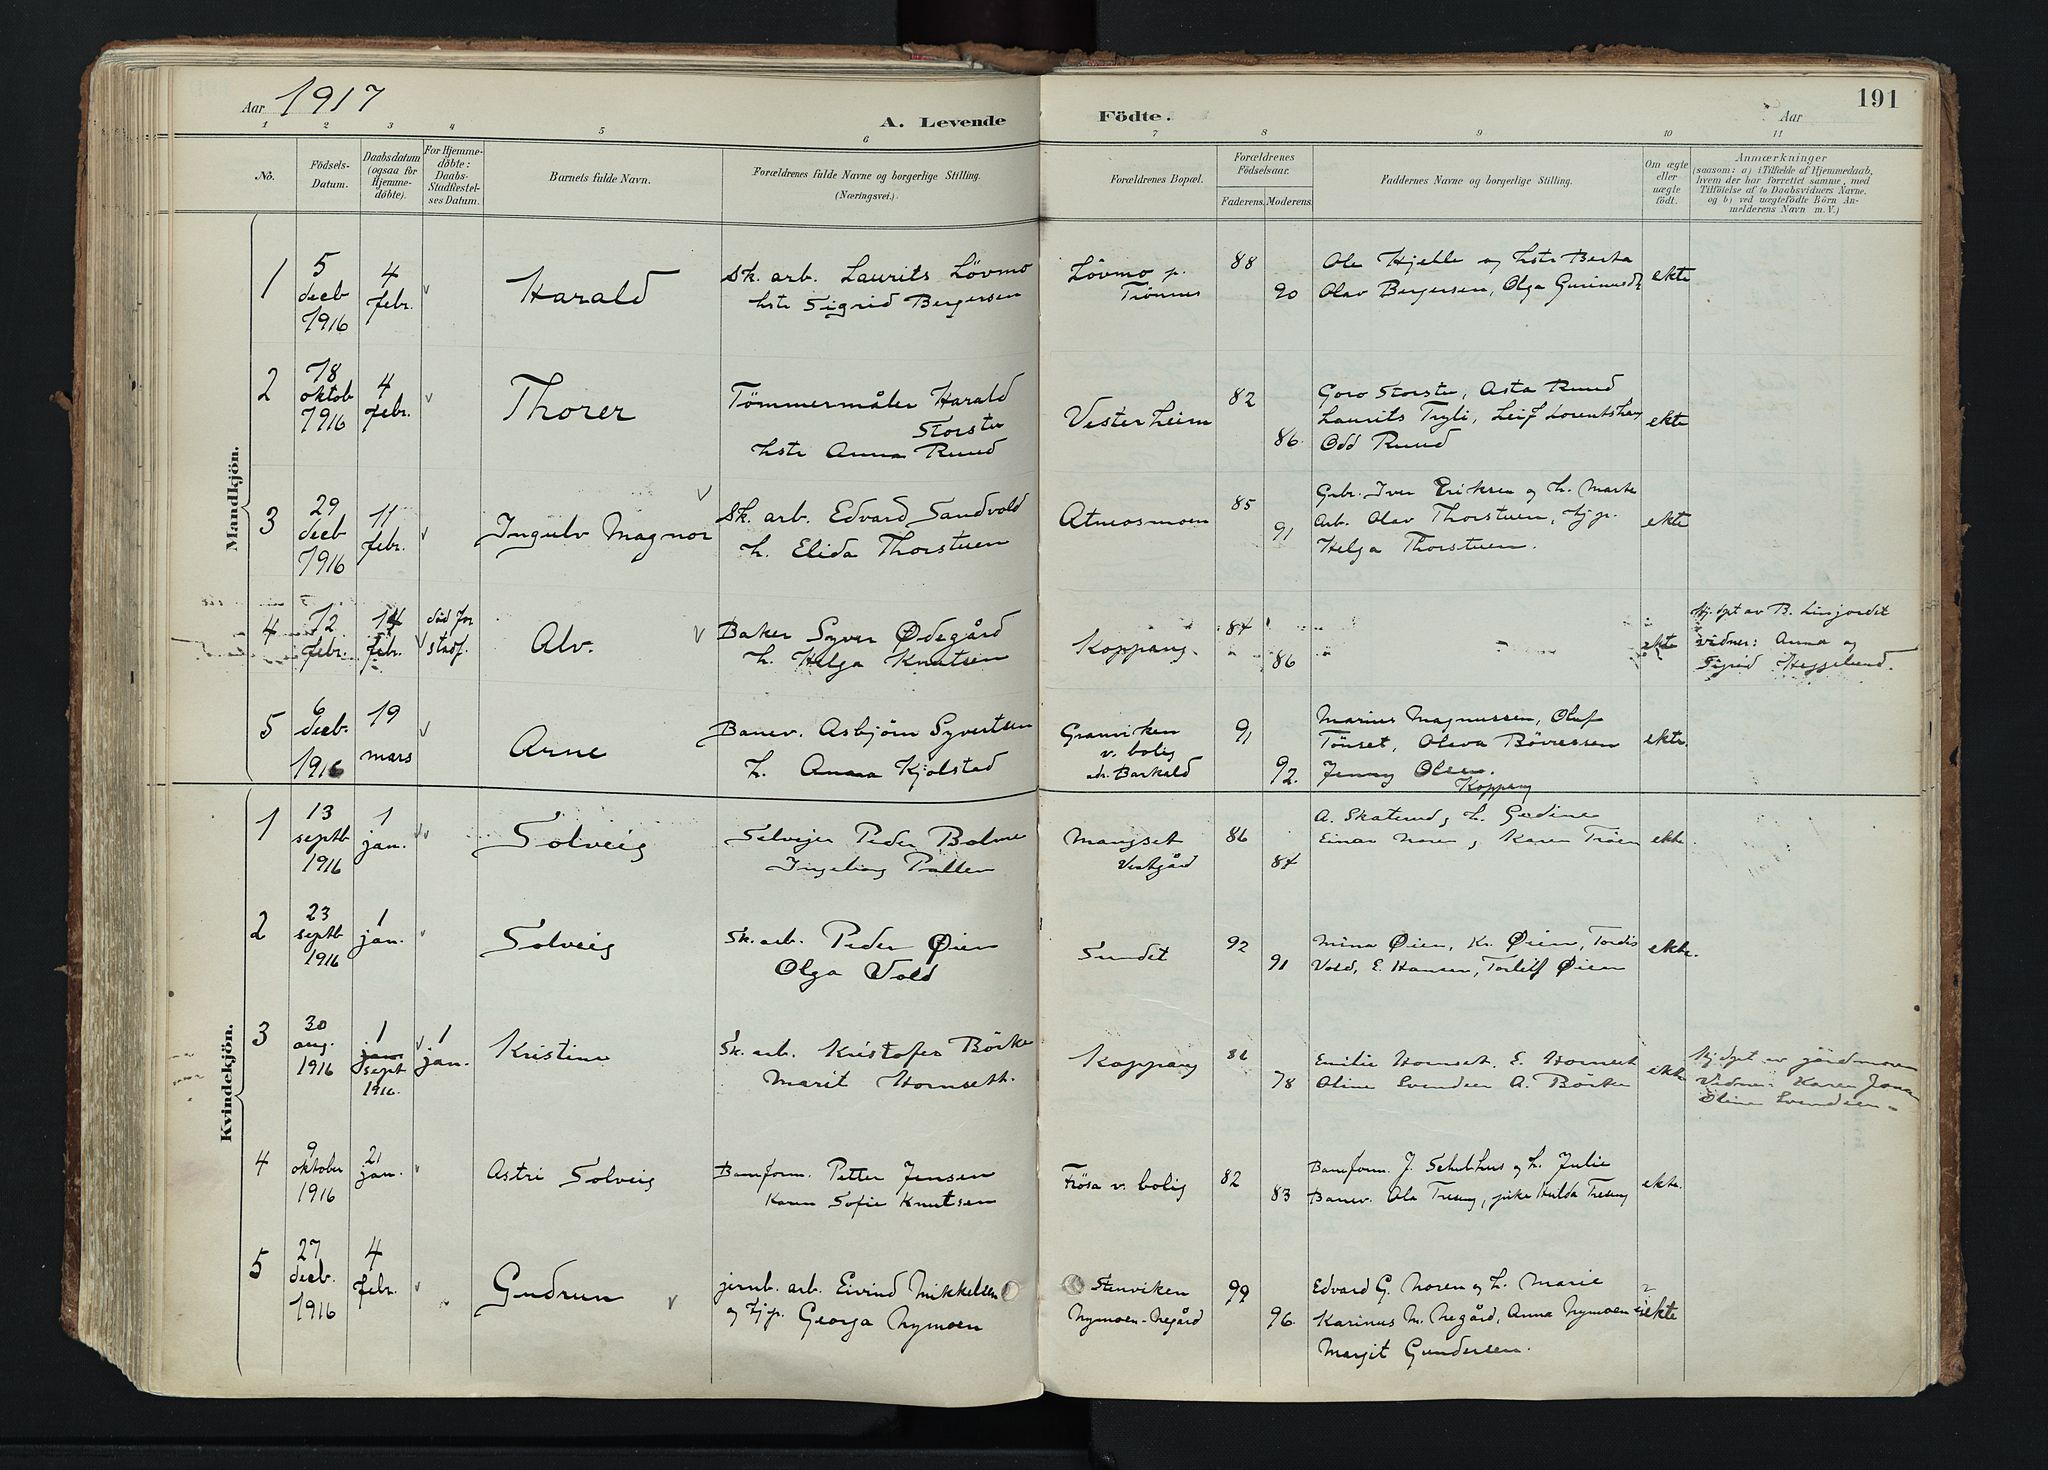 Aar 1917
A. Levende Födte.
Aar
191
1 2 3 4 5 6 7 8 9 10 11
No.
Födsels-Datum.
Daabsdatum (ogsaa for Hjemme-döbte).
For Hjemme-döbte: Daabs-Stadfæstel-ses Datum.
Barnets fulde Navn.
Forældrenes fulde Navne og borgerlige Stilling. (Næringsvei.)
Forældrenes Bopæl.
Forældrenes Födselsaar.
Faderens. Moderens.
Faddernes Navne og borgerlige Stilling.
Om ægte eller uægte födt.
Anmærkninger
(saasom: a) i Tilfælde af Hjemmedaab,
hvem der har forrettet samme, med
Tilföielse af to Daabsvidners Navne,
og b) ved uægtefödte Börn An-
melderens Navn m. V.)
Mandkjön.
1
5 decb 1916
4 febr.
Harald
Sk. arb. Laurits Lövmo
hstr Sigrid Bergersen
Lövmo p. Trönnes
88
90
Ole Hjelle og hstr Berta
Olav Bergersen, Olga
ekte
2
18 oktob 1916
4 febr.
Thorer
Tömmermåler Harald
Storstu
hstr Anna Ruud
Vesterheim
82
86.
Goro Storstu, Asta Ruud
Laurits Tryli, Leif Lorentshaug
Odd Ruud
ekte
3
29 decb 1916
11 febr.
Ingulv Magnor
Sk. arb. Edvard Sandvold
h. Elida Thorstuen
Atneosmoen
85
91
Gbr. Iver Eriksen og h. Marte
Arb. Olav Thorstuen, hjp.
Helga Thorstuen.
ekte
4
12 febr.
14 febr.
död for stadf.
Alv.
Baker Syver Ødegård
h. Helga Knutsen
Koppang.
84
86
ekte
Hj. dpt av B. Linjordet
vidner: Anna og
Sigrid Heggelund.
5
6 decb. 1916
19 mars
Arne
Banev. Asbjörn Syvertsen
h. Anna Kjolstad
Granviken
v. bolig
adr. Barkald
91
92.
Marius Magnussen, Oluf
Tönset, Oleva Böveressen
Jenny Olsen.
Koppang
ekte.
Kvindekjön.
1
13 septb 1916
1 jan.
Solveig
Selvejer Peder Bolme
Ingeborg Pallen
Mangset
Vestgård
86
84
A. Skaterud og h. Gedine
Einar Noren og Karen Tröen
ekte.
2
23 septb 1916
1 jan.
Solveig
Sk. arb. Peder Øien
Olga Vold
Sundet
92
91
Mina Øien, Kr. Øien, Tordis
Vold, E. Hansen, Torleif Øien
ekte.
3
30 aug. 1916
1 jan. sept 1916.
1 jan.
Kristine
Sk. arb. Kristofer Börke
Marit Hornseth.
Koppang
78
Emilie Hornset. E. Hornset
Oline Svendsen A. Börke
ekte
Hj.dpt av jordmoren
Vidner: Karen
Oline Svendsen
4
9 oktober 1916
21 jan.
Astri Solveig
Baneform. Petter Jensen
Karen Sofie Knutsen
Frösa v. bolig
82
83
Baneform. J. Schulhus og h. Julie
Banev. Ole Treseng, pike Hulda Treseng
ekte.
5
27 decb. 1916
4 febr.
Gudrun
jernb. arb. Eivind Mikkelsen
og hjp. Georga Nymoen
Stenviken
Nymoen-Negård
99
96.
Edvard G. Noren og h. Marie
Karinus M. Negård, Anna Nymoen
Margit Gundersen.
ekte